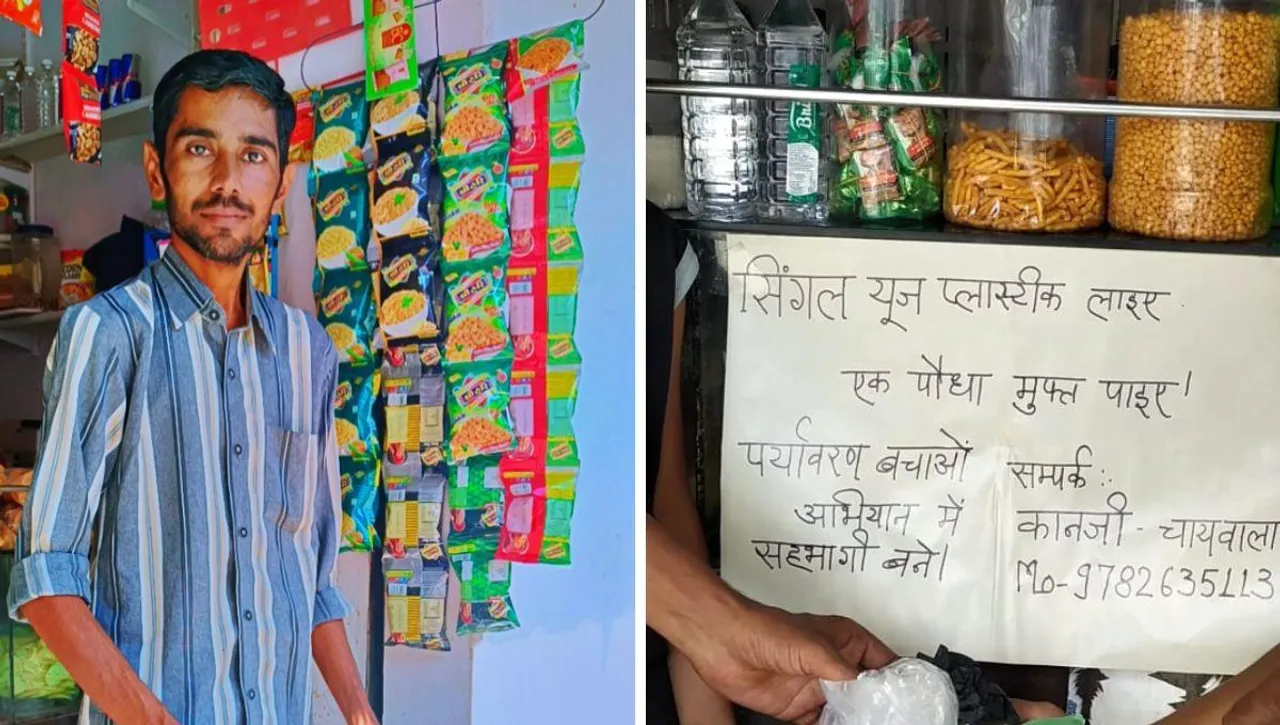 सिंगल यूज प्लास्टीक लाइए
एक पौधा मुफ्त पाइए!
पर्यावरण बचाओं
अभियान में
सहभागी बने।
सम्पर्क :-
कानजी - चायवाला
Mo-9782635113